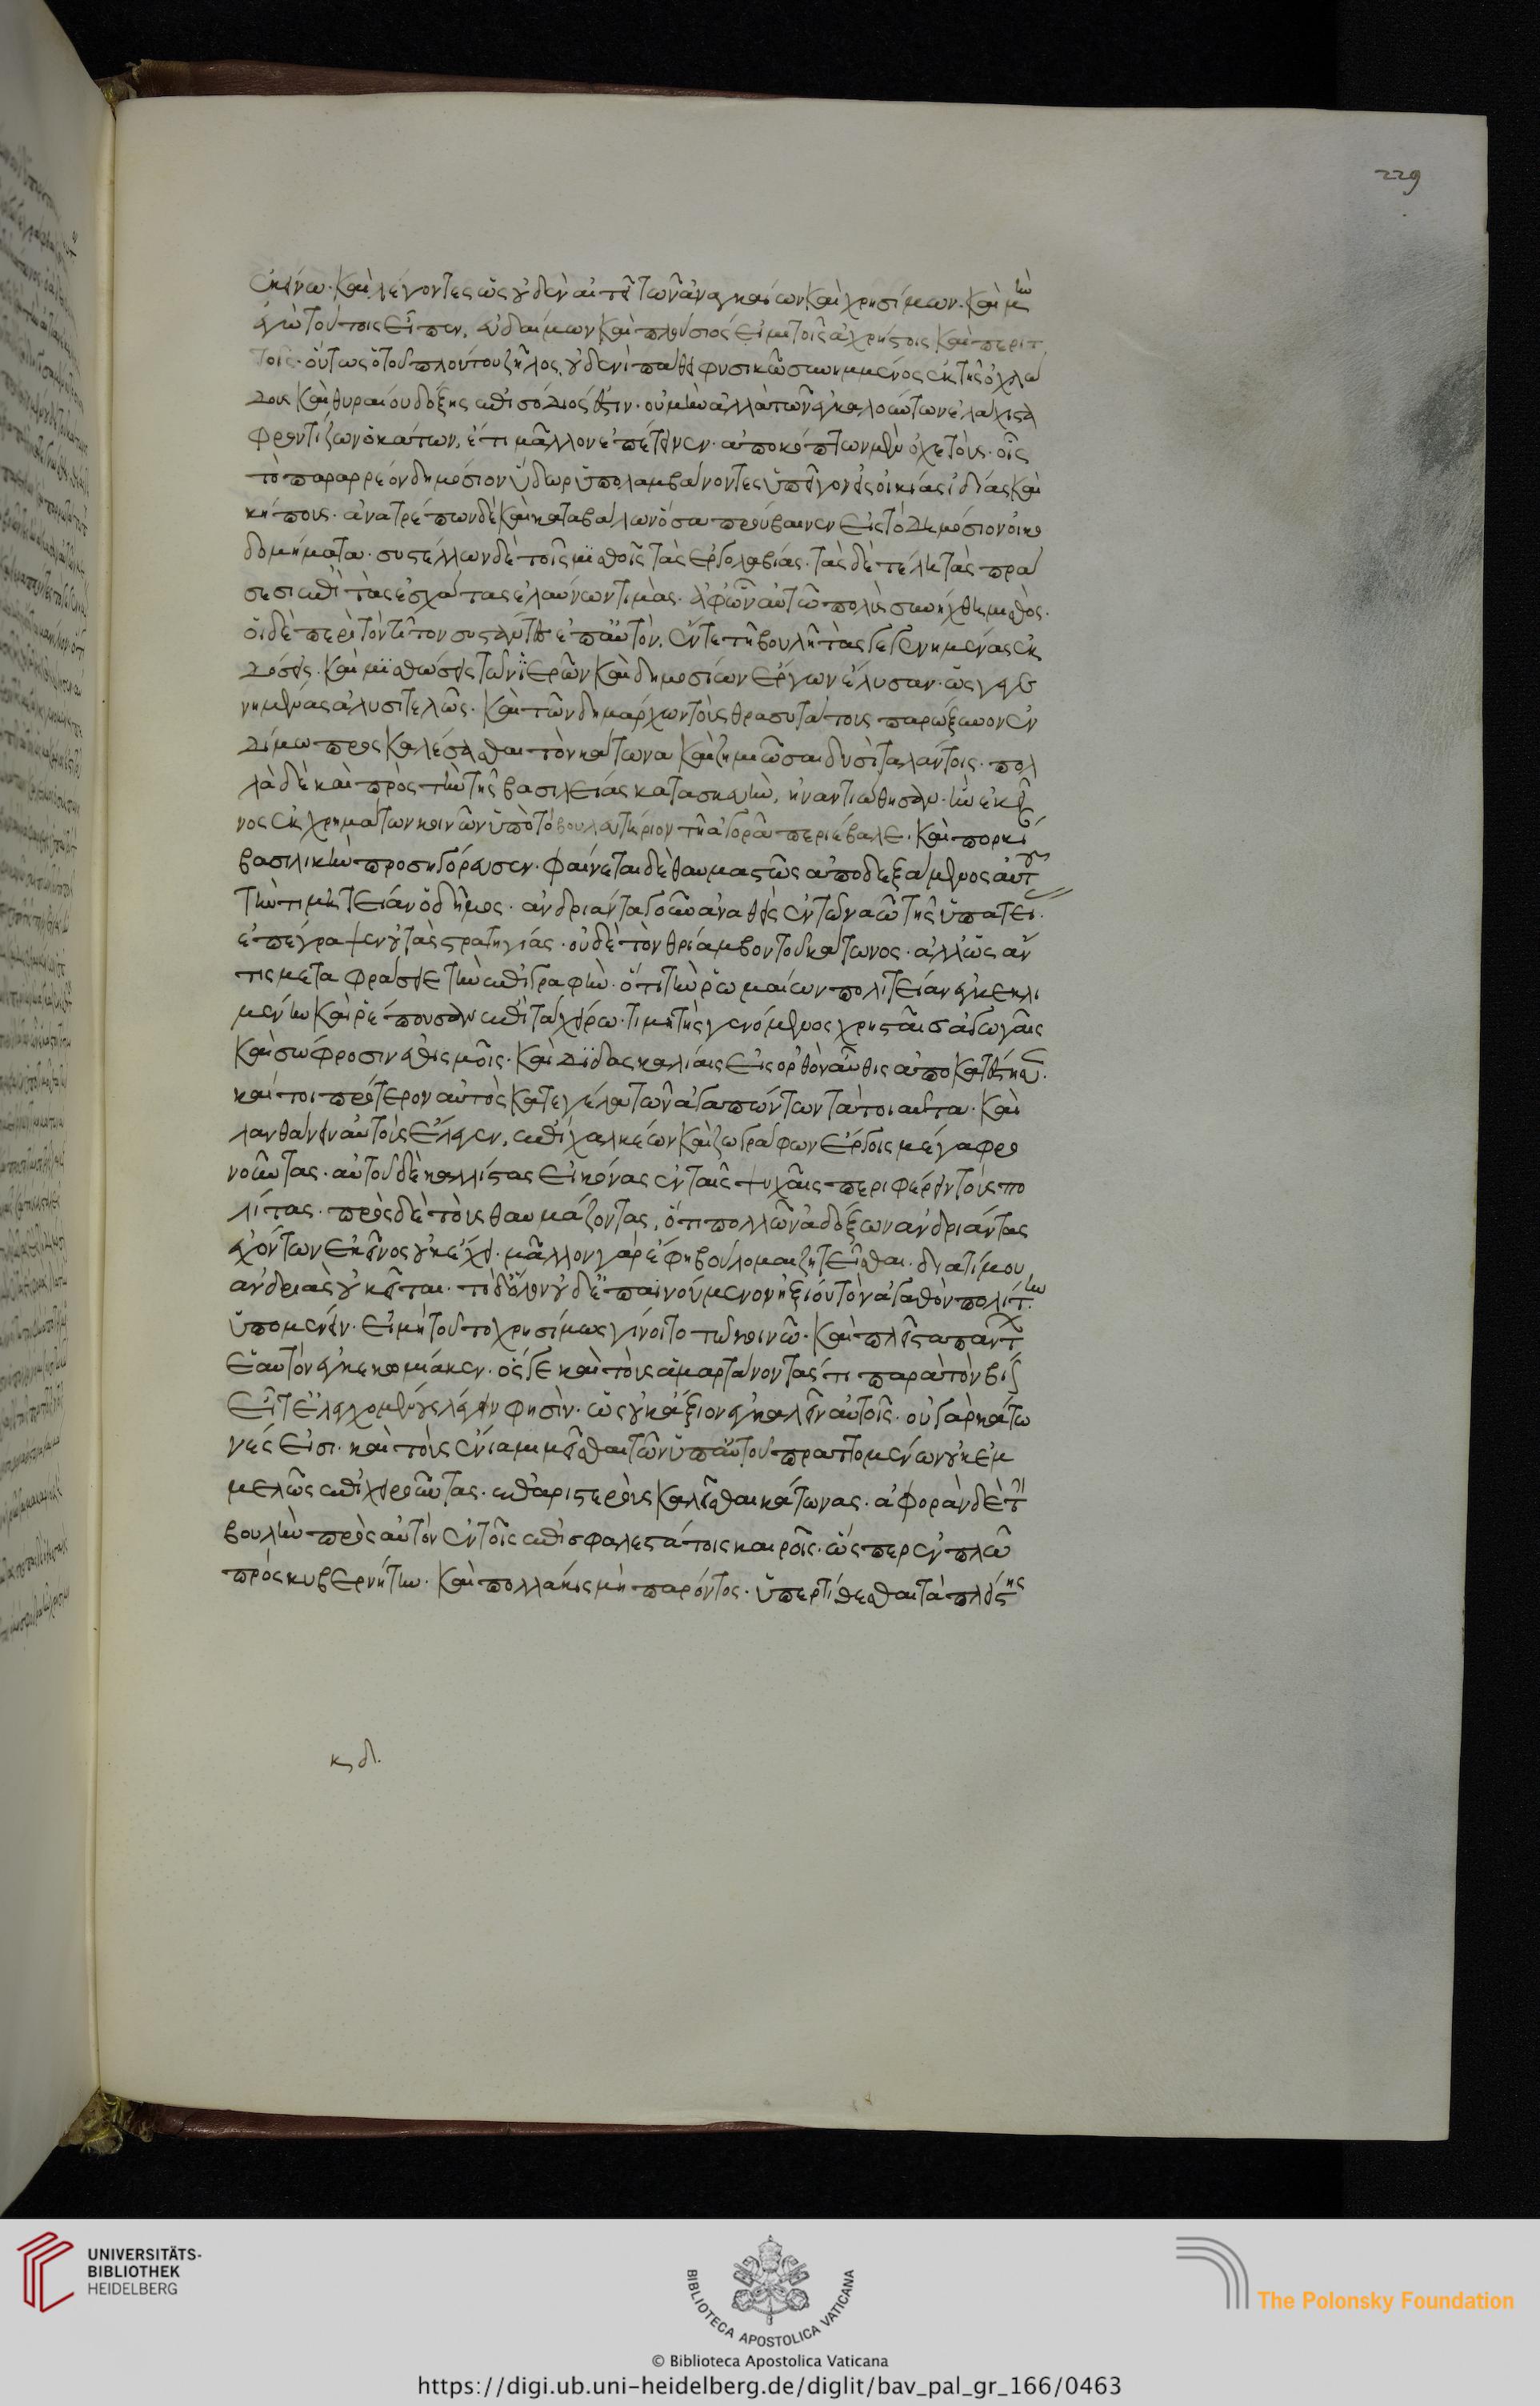 ἐκείνω· καὶ λέγοντες ὡς οὐδὲν αἰτεῖ τῶν ἀναγκαίων καὶ χρησίμων· καὶ μὴν
ἐγὼ τούτοις εἶπεν, εὐδαίμων καὶ πλούσιός εἰμι τοῖς ἀχρήστοις καὶ περιτ
τοῖς· οὕτως ὁ τοῦ πλούτου ζῆλος, οὐδενὶ πάθει φυσικῶ συνημμένος ἐκ τῆς ὀχλώ
δους καὶ θυραίου δόξης ἐπεισόδιός ἐστιν· οὐ μὴν ἀλλὰ τῶν ἐγκαλούντων ἐλάχιστα
φροντίζων ὁ κάτων, ἔτι μᾶλλον ἐπέτεινεν· ἀποκόπτων μὲν ὀχετοὺς· οἷς
τὸ παραρρέον δημόσιον ὕδωρ ὑπολαμβάνοντες ὑπῆγον εἰς οἰκίας ἰδίας καὶ
κήπους· ἀνατρέπων δὲ καὶ καταβάλλων ὅσα προύβαινεν εἰς τὸ δημόσιον οἰκο
δομήματα· συστέλλων δὲ τοῖς μισθοῖς τὰς ἐργολαβίας· τὰς δὲ τέλη τὰς πρά
σεσι ἐπὶ τὰς ἐσχάτας ἐλαύνων τιμὰς· ἀφ' ὧν αὐτῶ πολὺ συνήχθη μῖσος·
οἱ δὲ περὶ τὸν τίτον συστάντες ἐπ' αὐτὸν, ἔν τε τῆ βουλῆ τὰς γεγενημένας ἐκ
δόσεις· καὶ μισθώσεις τῶν ἱερῶν καὶ δημοσίων ἔργων ἔλυσαν· ὡς γεγε
νημένας ἀλυσιτελῶς· καὶ τῶν δημάρχων τοὺς θρασυτάτους παρώξυνον ἐν
δήμω προσκαλέσασθαι τὸν κάτωνα καὶ ζημιῶσαι δυσὶ ταλάντοις· πολ
λὰ δὲ καὶ πρὸς τὴν τῆς βασιλείας κατασκευὴν, ἠναντιώθησαν· ἣν ἐκεῖ
νος ἐκ χρημάτων κοινῶν ὑπὸ τὸ βουλευτήριον τῆ ἀγορᾶ περιέβαλε· καὶ πορκί
βασιλικὴν προσηγόρευσεν· φαίνεται δὲ θαυμαστῶς ἀποδεξάμενος αὐτοῦ
τὴν τιμητείαν ὁ δῆμος· ἀνδριάντα γοῦν ἀναθεὶς ἐν τῶ ναῶ τῆς ὑπατεί·
ἐπέγραψεν οὐ τὰς στρατηγίας· οὐδὲ τὸν θρίαμβον τοῦ κάτωνος· ἀλλ' ὡς ἄν
τις μεταφράσειε τὴν ἐπιγραφὴν· ὅτι τὴν ῥωμαίων πολιτείαν ἐγκεκλι
μένην καὶ ῥέπουσαν ἐπὶ τὸ χεῖρω· τιμητὴς γενόμενος χρησταῖς ἀγωγαῖς
καὶ σώφροσιν ἐθισμοῖς· καὶ διδασκαλίαις εἰς ὀρθὸν αὖθις ἀποκατέστησεν·
καίτοι πρότερον αὐτὸς κατεγέλα τῶν ἀγαπώντων τὰ τοιαῦτα· καὶ
λανθάνειν αὐτοὺς ἔλεγεν, ἐπὶ χαλκέων καὶ ζωγράφων ἔργοις μέγα φρο
νοῦντας· αὐτοῦ δὲ καλλίστας εἰκόνας ἐν ταῖς ψυχαῖς περιφέρειν τοὺς πο
λίτας· πρὸς δὲ τοὺς θαυμάζοντας, ὅτι πολλῶν ἀδόξων ἀνδριάντας
ἐχόντων ἐκεῖνος οὐκ ἔχει· μᾶλλον γὰρ ἔφη βούλομαι ζητεῖσθαι· διατί μου
ἀνδριὰς οὐ κεῖται· τὸ δ' ὅλον οὐδ' ἐπαινούμενον ἠξίου τὸν ἀγαθὸν πολίτην
ὑπομένειν· εἰ μὴ τοῦτο χρησίμως γίνοιτο τῶ κοινῶ· καὶ πλεῖστα πάντων
ἑαυτὸν ἐγκεκωμίακεν· ὅς γε καὶ τοὺς ἁμαρτάνοντάς τι παρὰ τὸν βίον
εἶτ' ἐλεγχομένους λέγειν φησὶν· ὡς οὐκ ἄξιον ἐγκαλεῖν αὐτοῖς· οὐ γὰρ κάτω
νές εἰσι· καὶ τοὺς ἔνια μιμεῖσθαι τῶν ὑπ' αὐτοῦ πραττομένων οὐκ ἐμ
μελῶς ἐπιχειροῦντας· ἐπαριστέρους καλεῖσθαι κάτωνας· ἀφορὰν δὲ τὴν
βουλὴν πρὸς αὐτὸν ἐν τοῖς ἐπισφαλεστάτοις καιροῖς· ὥσπερ ἐν πλῶ
πρὸς κυβερνήτην· καὶ πολλάκις μὴ παρόντος· ὑπερτίθεσθαι τὰ πλείστης
229
© Biblioteca Apostolica Vaticana
UNIVERSITÄTS-
BIBLIOTHEK
HEIDELBERG
BIBLIOTECA APOSTOLICA VATICANA
The Polonsky Foundation
https://digi.ub.uni-heidelberg.de/diglit/bav_pal_gr_166/0463